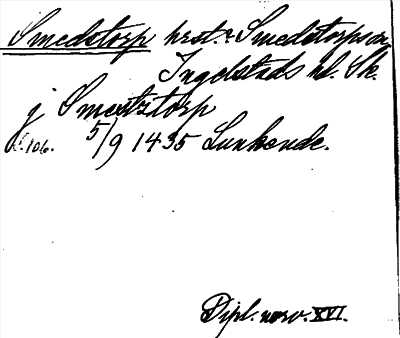 Smedstorp hest. o. Smedstorps sn
Ingelstads hd. Sk.
j Smertztorp
s. 106. 5/9 1435 Lunkende.
Dipl. norv. XVI.